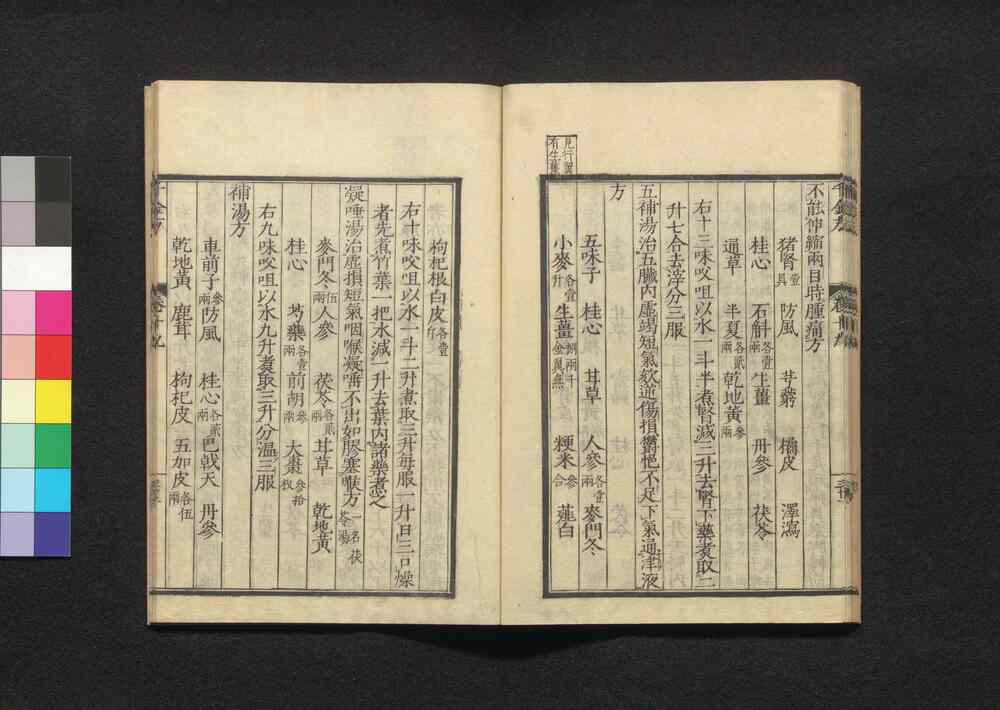 見行翼
有生薑
不能伸縮兩目時腫痛方
猪腎壹具 防風 芎藭 橘皮 澤瀉
桂心 石斛各壹兩 生薑 丹參 茯苓
通草 半夏各貳兩 乾地黃參兩
右十三味㕮咀以水一斗半煮腎減三升去腎下藥煮取二
升七合去滓分三服
五補湯治五臟內虛竭短氣欬逆傷損鬱悒不足下氣通津液
方
五味子 桂心 甘草 人參各壹兩 麥門冬
小麥各壹升 生薑 粳米參合 薤白
枸杞根白皮各壹斤
右十味㕮咀以水一斗二升煮取三升每服一升日三口燥
者先煮竹葉一把水減一升去葉內諸藥煮之
凝唾湯治虛損短氣咽喉凝唾不出如膠塞喉方一名茯苓湯
麥門冬伍兩 人參 茯苓各貳兩 甘草 乾地黃
桂心 芍藥各壹兩 前胡參兩 大棗參拾枚
右九味㕮咀以水九升煮取三升分溫三服
補湯方
車前子參兩 防風 桂心各貳兩 巴戟天 丹參
乾地黃 鹿茸 枸杞皮 五加皮各伍兩